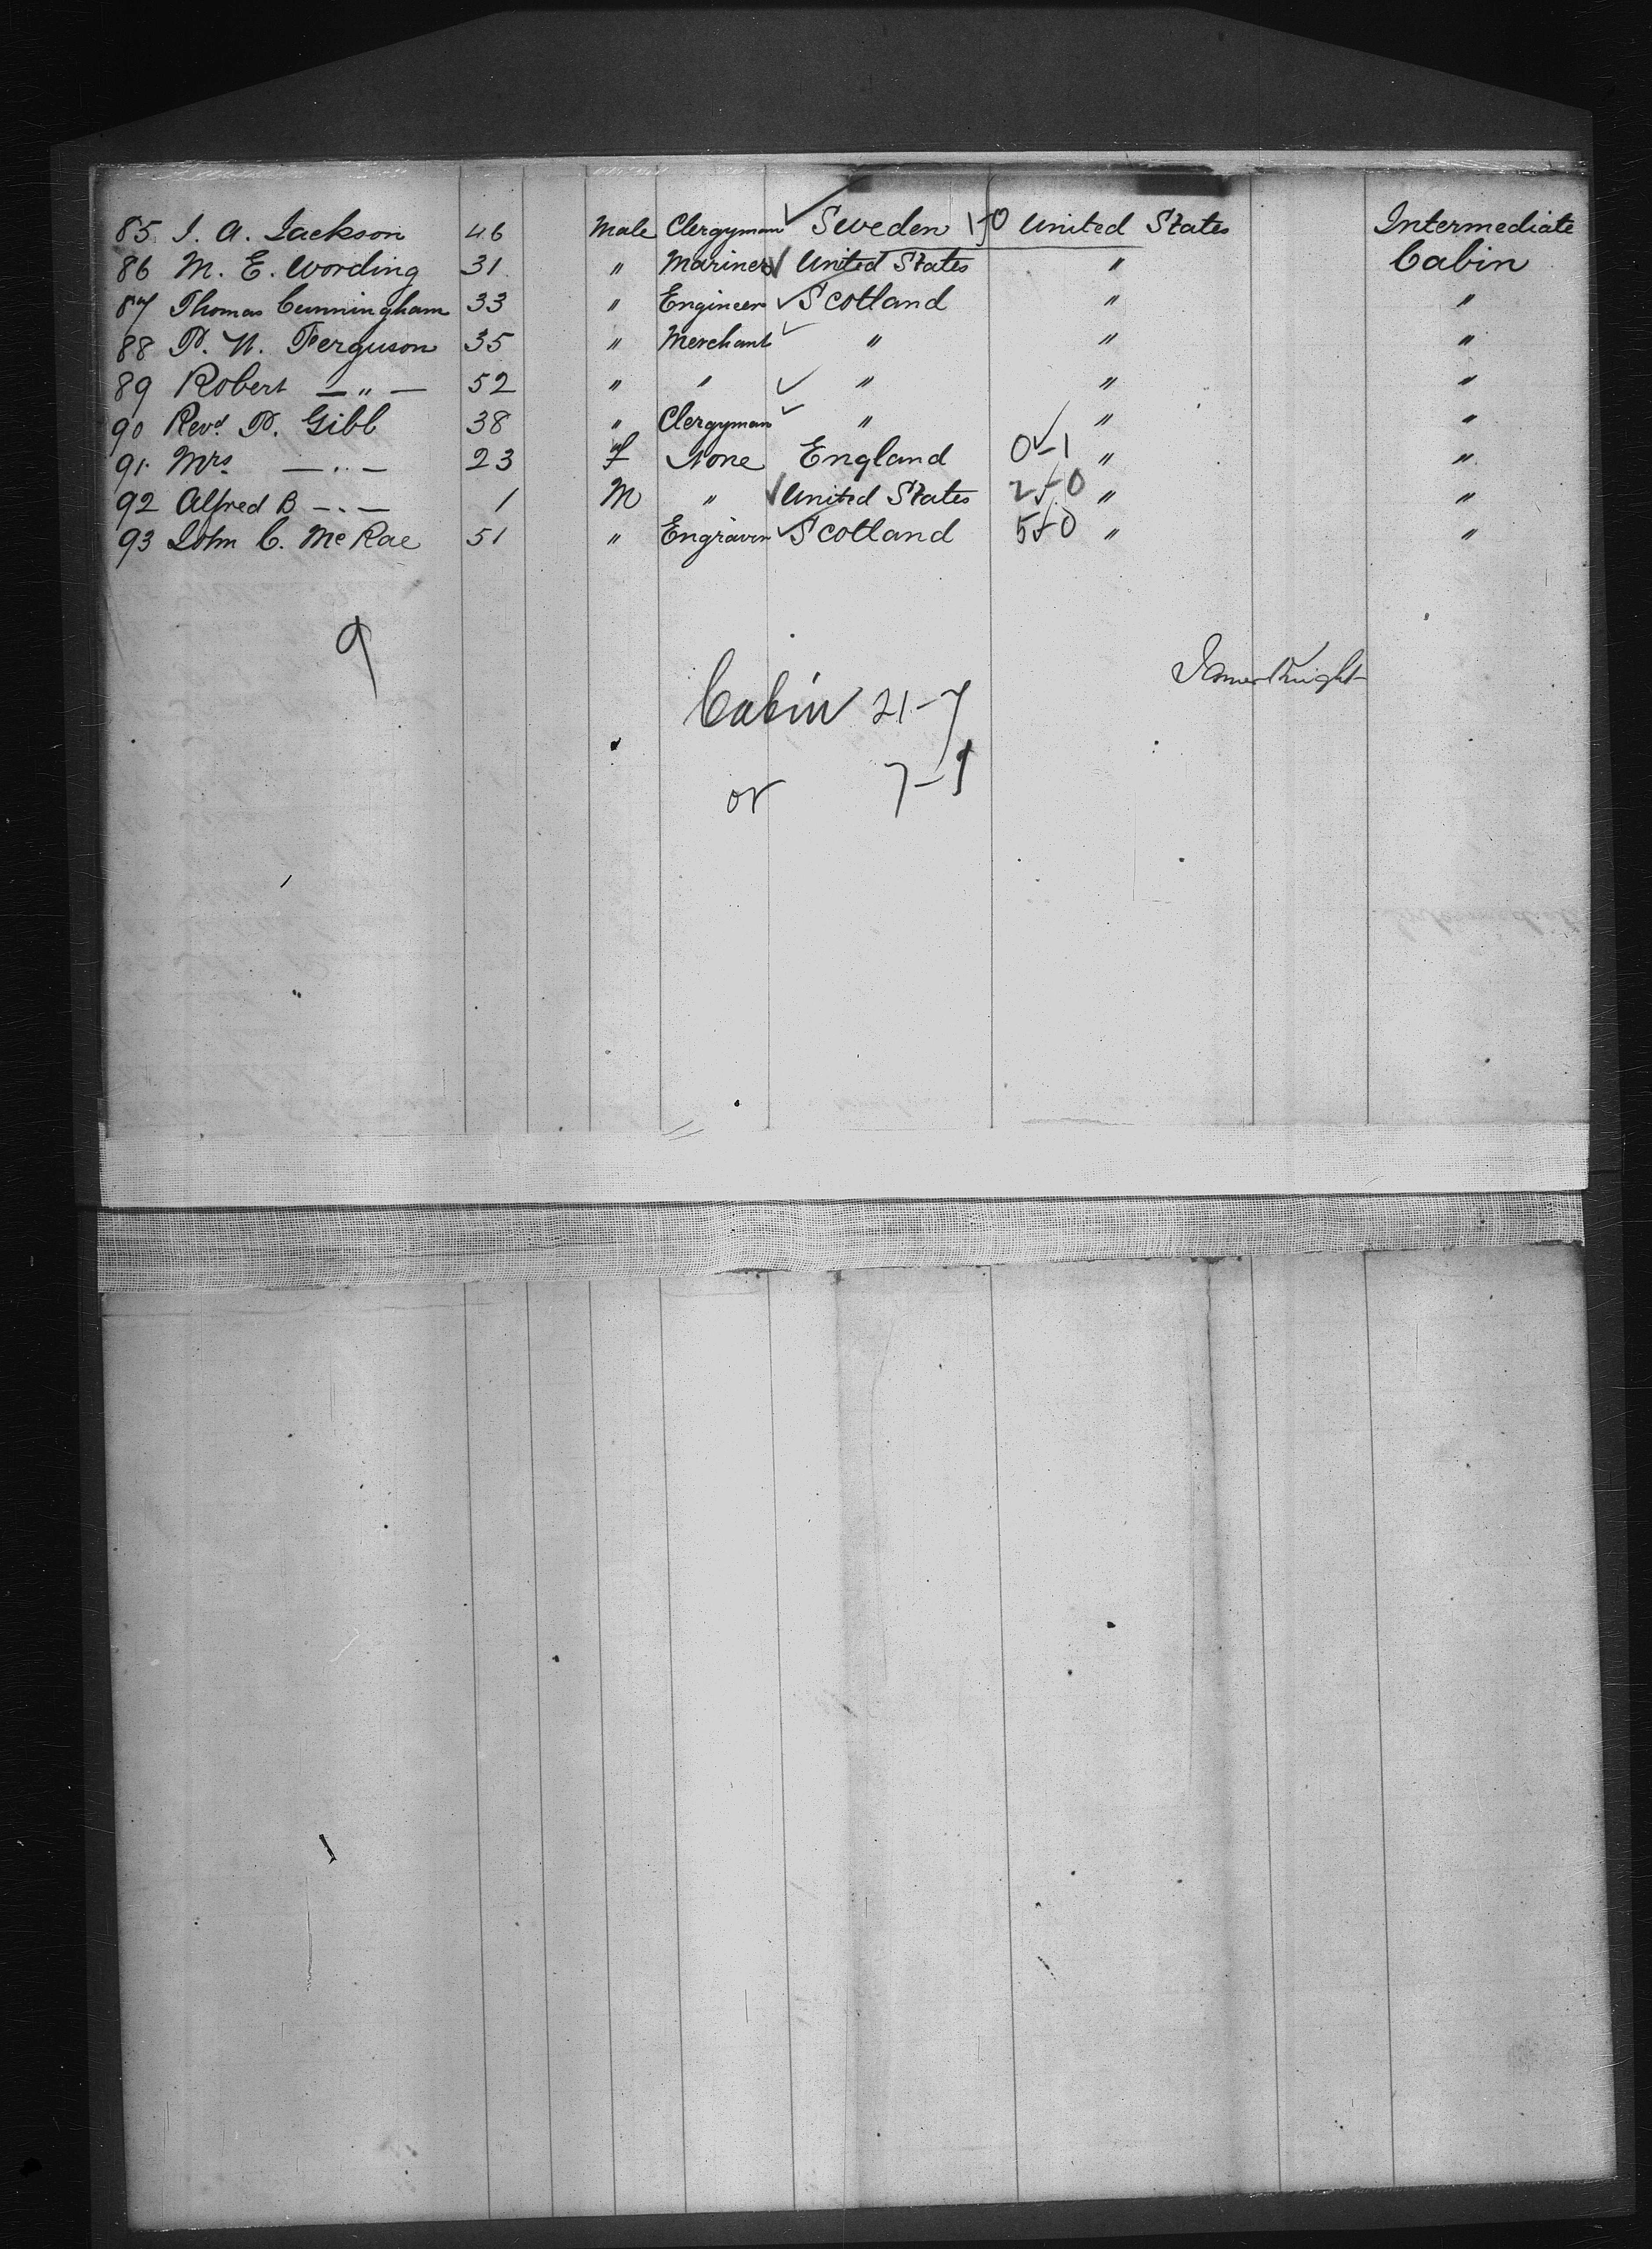 85 J. A. Jackson 46 Male Clergyman Sweden 1-0 United States Intermediate
86 M. E. Wording 31 " Mariner United States " Cabin
87 Thomas Cunningham 33 " Engineer Scotland " "
88 P. N. Ferguson 35 " Merchant " " "
89 Robert — " — 52 " " " " "
90 Revd. P. Gibb 38 " Clergyman " " "
91 Mrs — " — 23 f None England 0-1 " "
92 Alfred B — " — 1 M " United States 2-0 " "
93 John C. McRae 51 " Engraver Scotland 5-0 " "
9
James Knight
Cabin 21-7
or 7-1